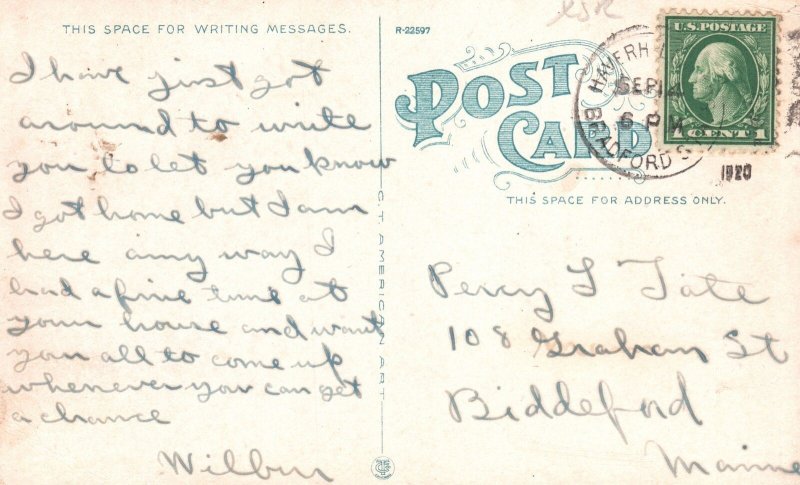 THIS SPACE FOR WRITING MESSAGES.
I have just got
around to write
you to let you know
I got home but I am
here any way I
had a fine time at
your house and want
you all to come up
whenever you can get
a chance
Wilbur
C.T. AMERICAN ART
R-22597
POST
CARD
U.S. POSTAGE
CENT 1
HAVERH
SEP 14
6 P M
BRADFORD S
1920
THIS SPACE FOR ADDRESS ONLY.
Percy L Tate
108 Graham St
Biddeford
Maine